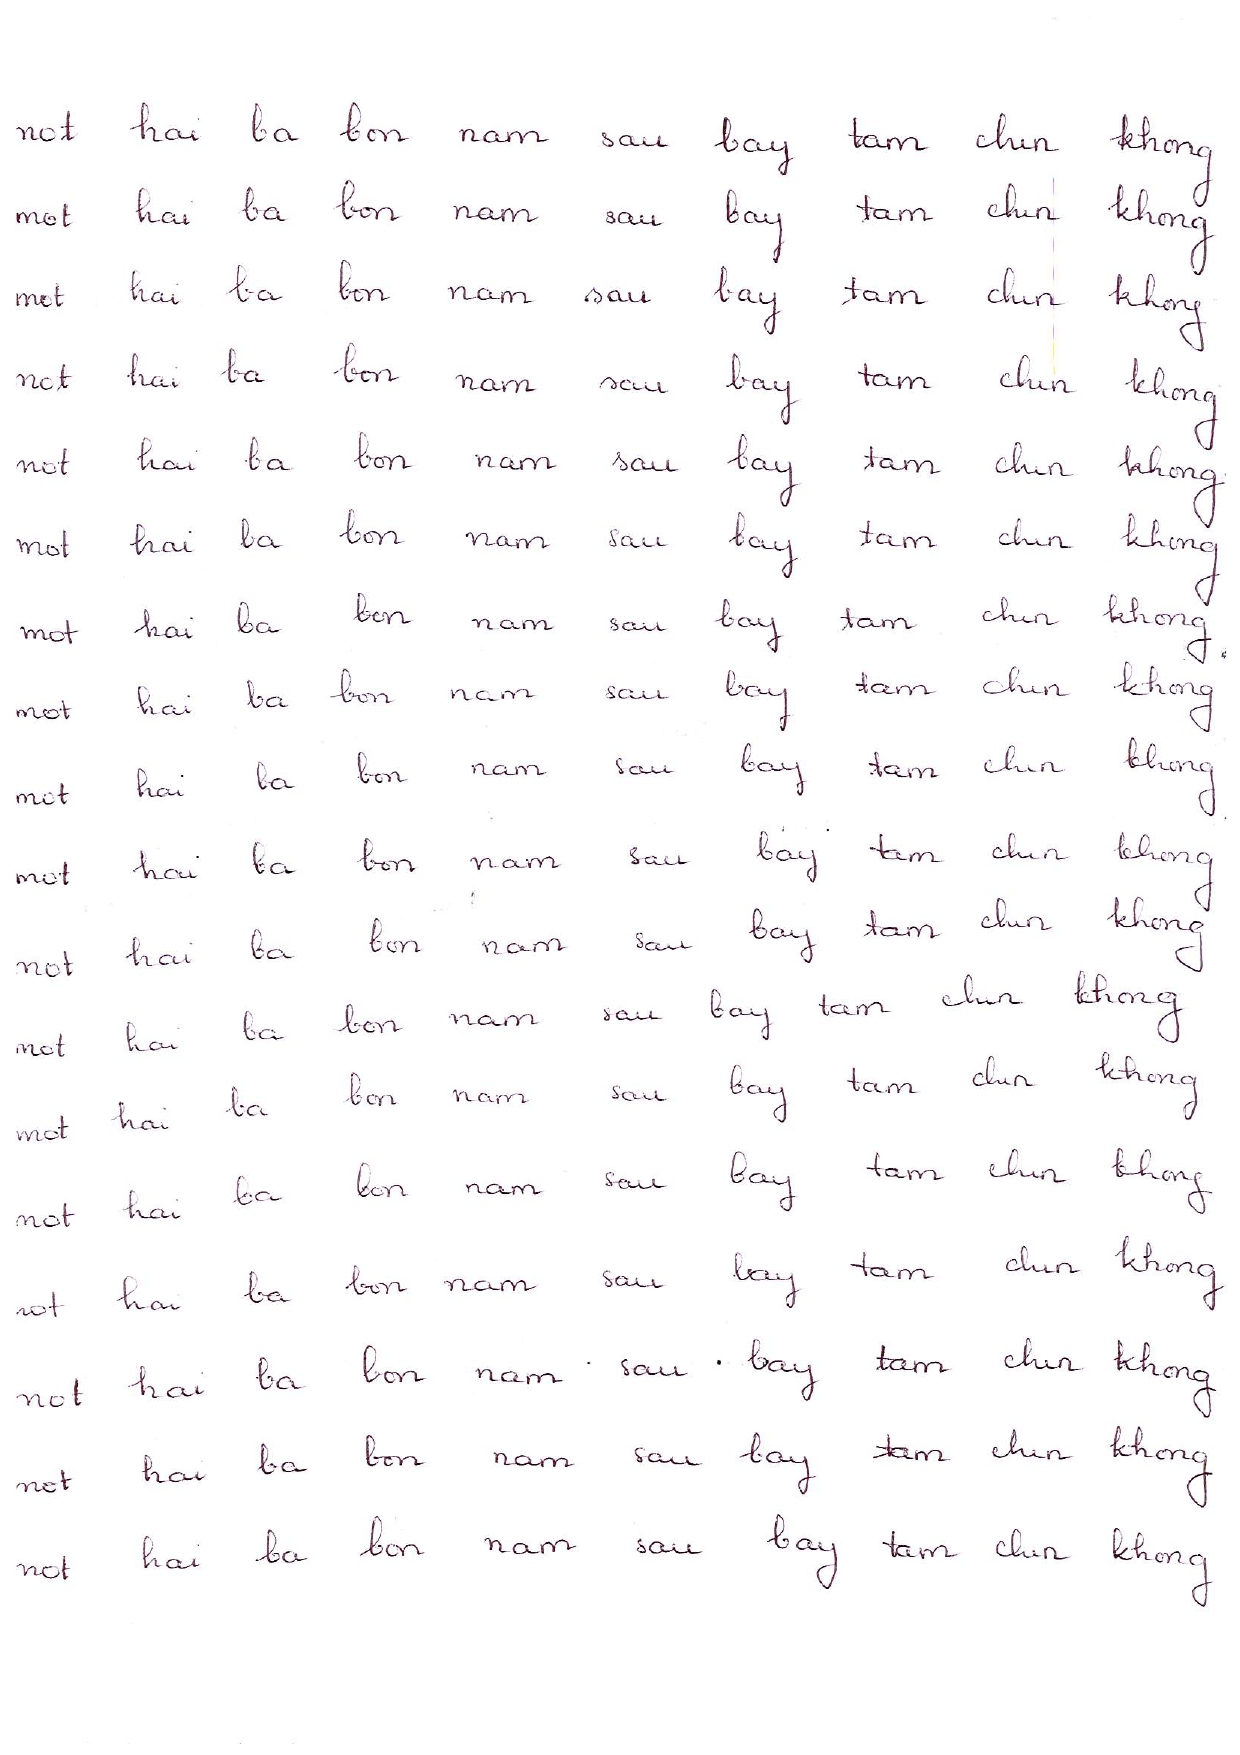 not hai ba bon nam sau bay tam chin khong
mot hai ba bon nam sau bay tam chin khong
mot hai ba bon nam sau bay tam chin khong
not hai ba bon nam sau bay tam chin khong
not hai ba bon nam sau bay tam chin khong
mot hai ba bon nam sau bay tam chin khong
mot hai ba bon nam sau bay tam chin khong
mot hai ba bon nam sau bay tam chin khong
mot hai ba bon nam sau bay tam chin khong
mot hai ba bon nam sau bay tam chin khong
not hai ba bon nam sau bay tam chin khong
mot hai ba bon nam sau bay tam chin khong
mot hai ba bon nam sau bay tam chin khong
not hai ba bon nam sau bay tam chin khong
not hai ba bon nam sau bay tam chin khong
not hai ba bon nam sau bay tam chin khong
not hai ba bon nam sau bay tam chin khong
not hai ba bon nam sau bay tam chin khong